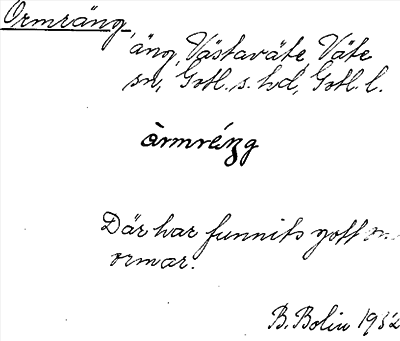 Ormräng,
äng, Västaväte, Väte
sn, Gotl. s. hd, Gotl. l.
àrmréŋg
Där har funnits gott om
ormar.
B. Bolin 1932